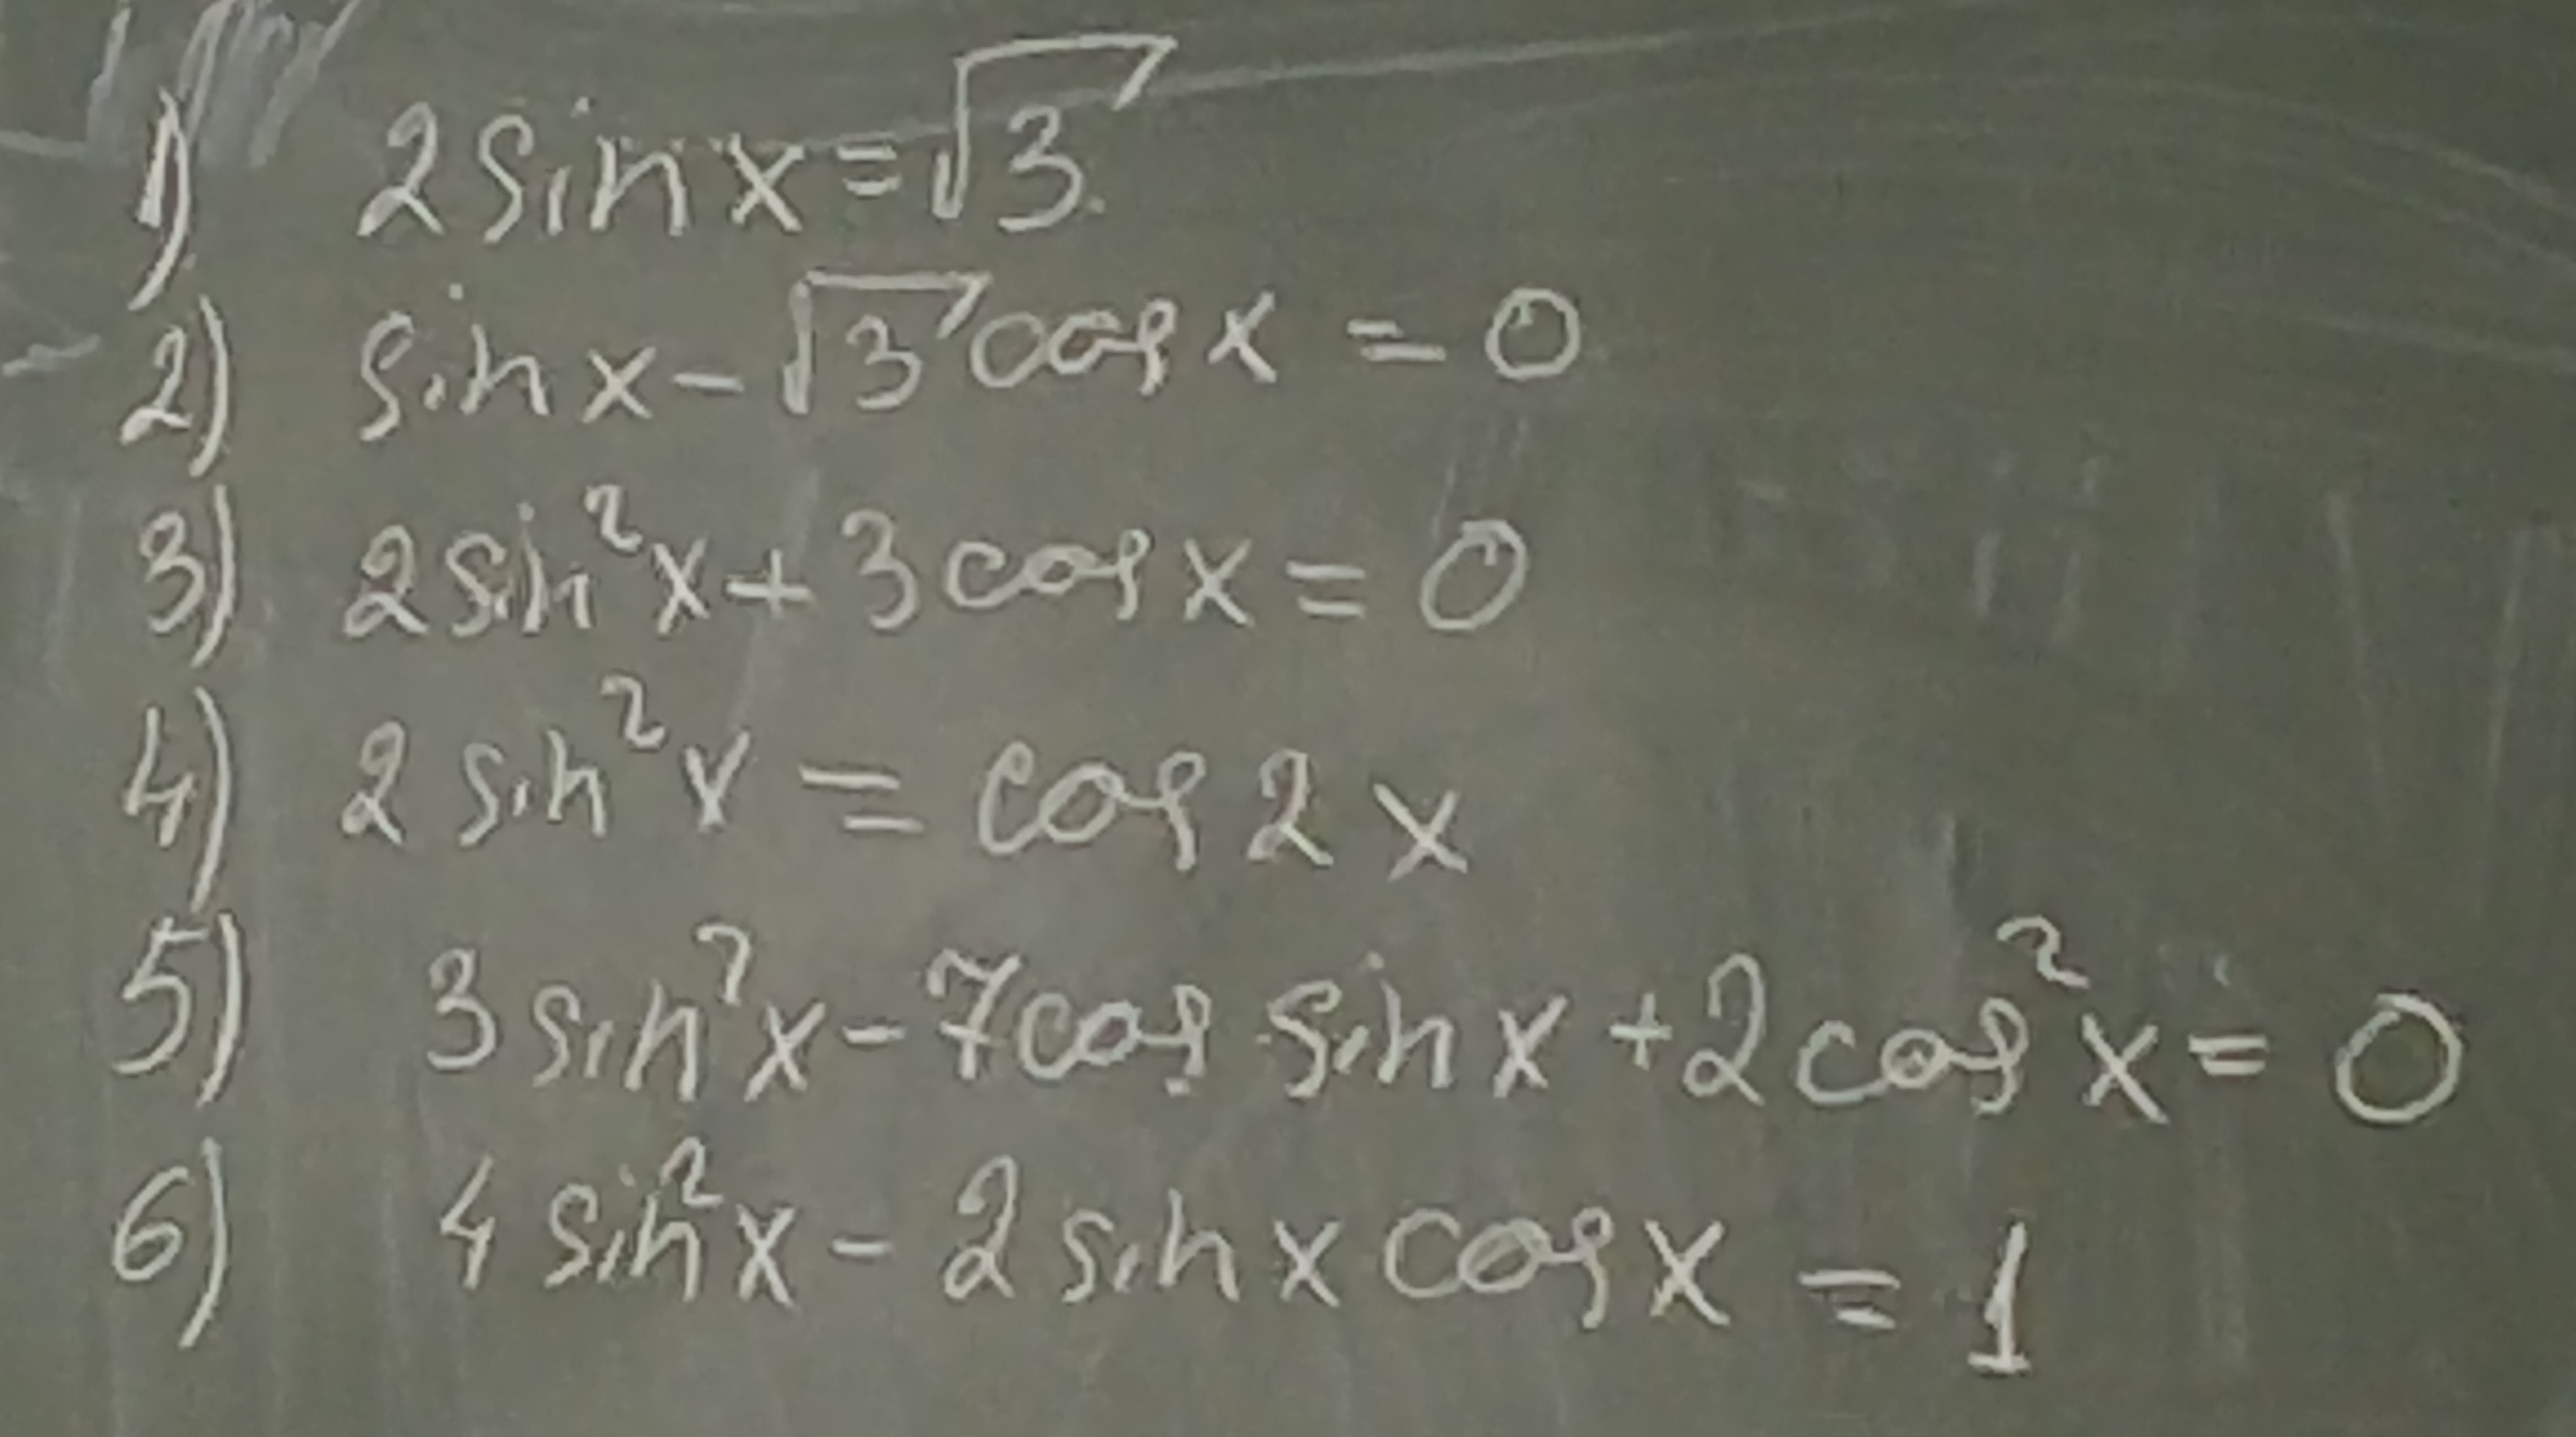 1) 2sinx=√3
2) sinx-√3cosx=0
3) 2sin²x+3cosx=0
4) 2sin²x=cos2x
5) 3sin²x-7cos sinx+2cos²x=0
6) 4sin²x-2sinxcosx=1